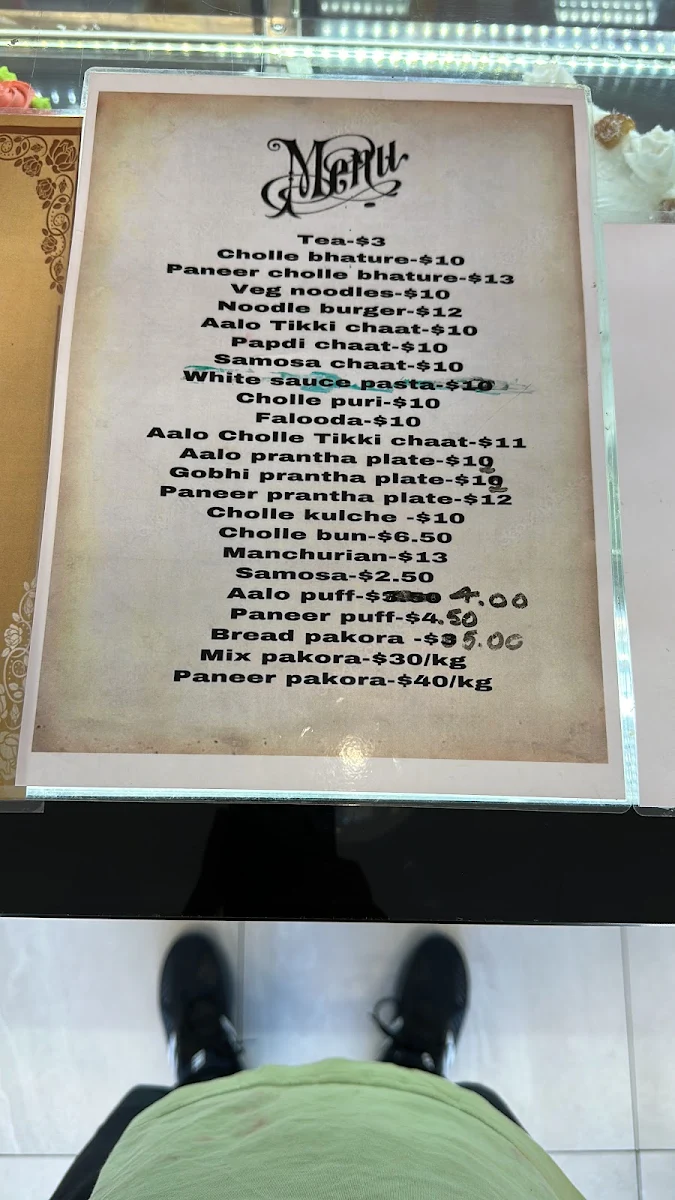 Menu
Tea-$3
Cholle bhature-$10
Paneer cholle bhature-$13
Veg noodles-$10
Noodle burger-$12
Aalo Tikki chaat-$10
Papdi chaat-$10
Samosa chaat-$10
White sauce pasta-$10
Cholle puri-$10
Falooda-$10
Aalo Cholle Tikki chaat-$11
Aalo prantha plate-$10
Gobhi prantha plate-$10
Paneer prantha plate-$12
Cholle kulche -$10
Cholle bun-$6.50
Manchurian-$13
Samosa-$2.50
Aalo puff-$ 4.00
Paneer puff-$4.50
Bread pakora -$ 5.00
Mix pakora-$30/kg
Paneer pakora-$40/kg